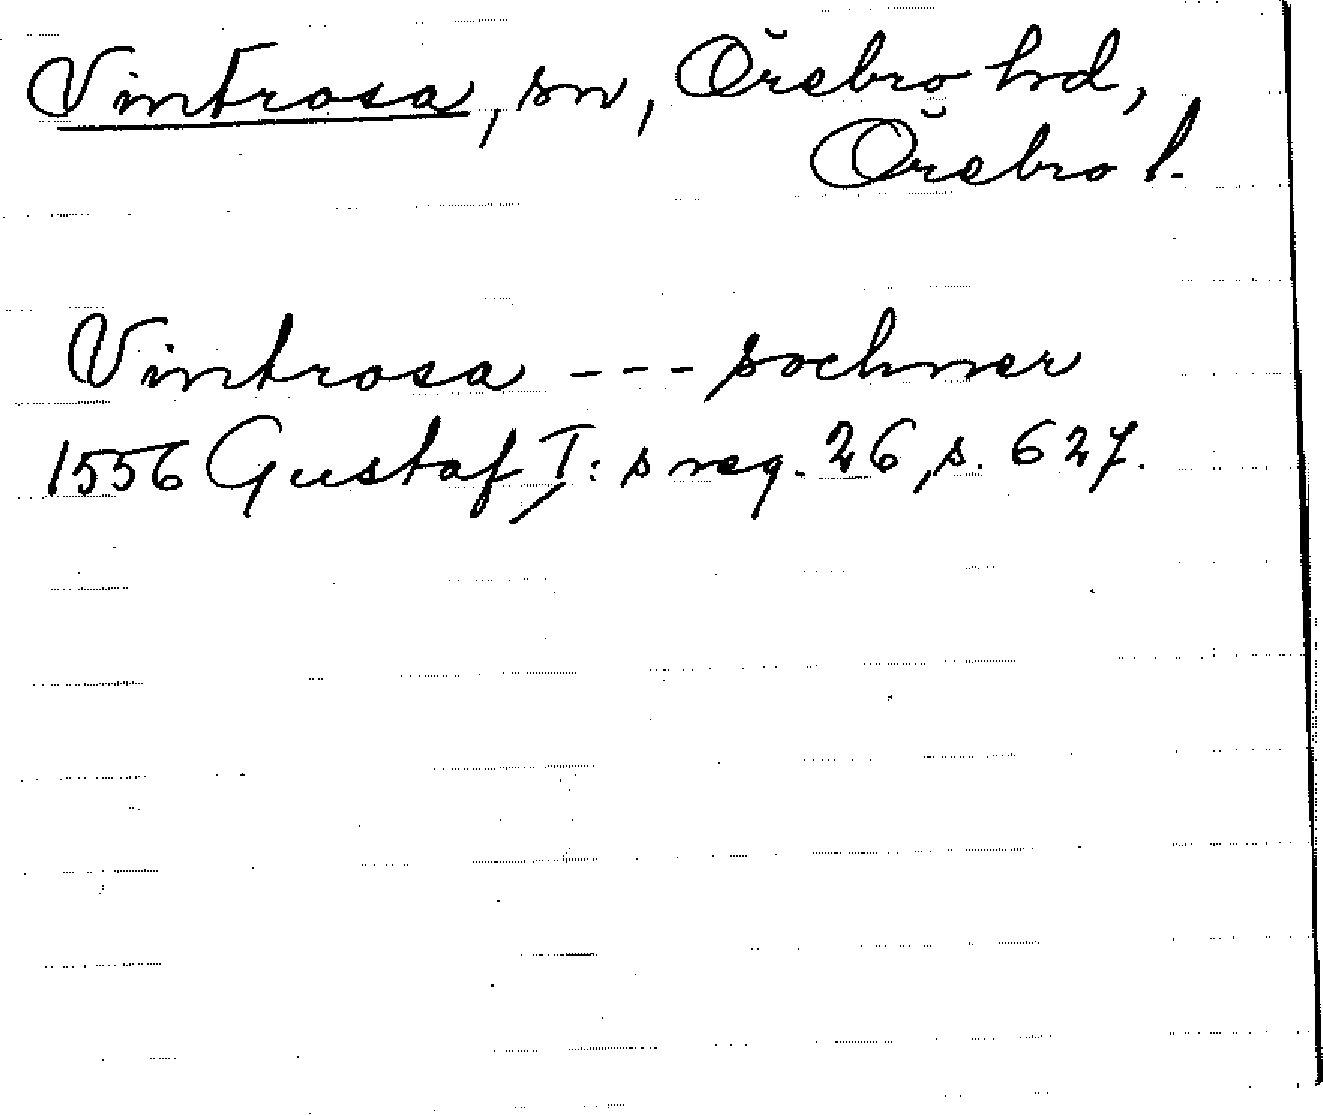 Vintrosa, sn, Örebro hd,
Örebro l.
Vintrosa --- sochner
1556 Gustaf I:s reg. 26, s. 627.